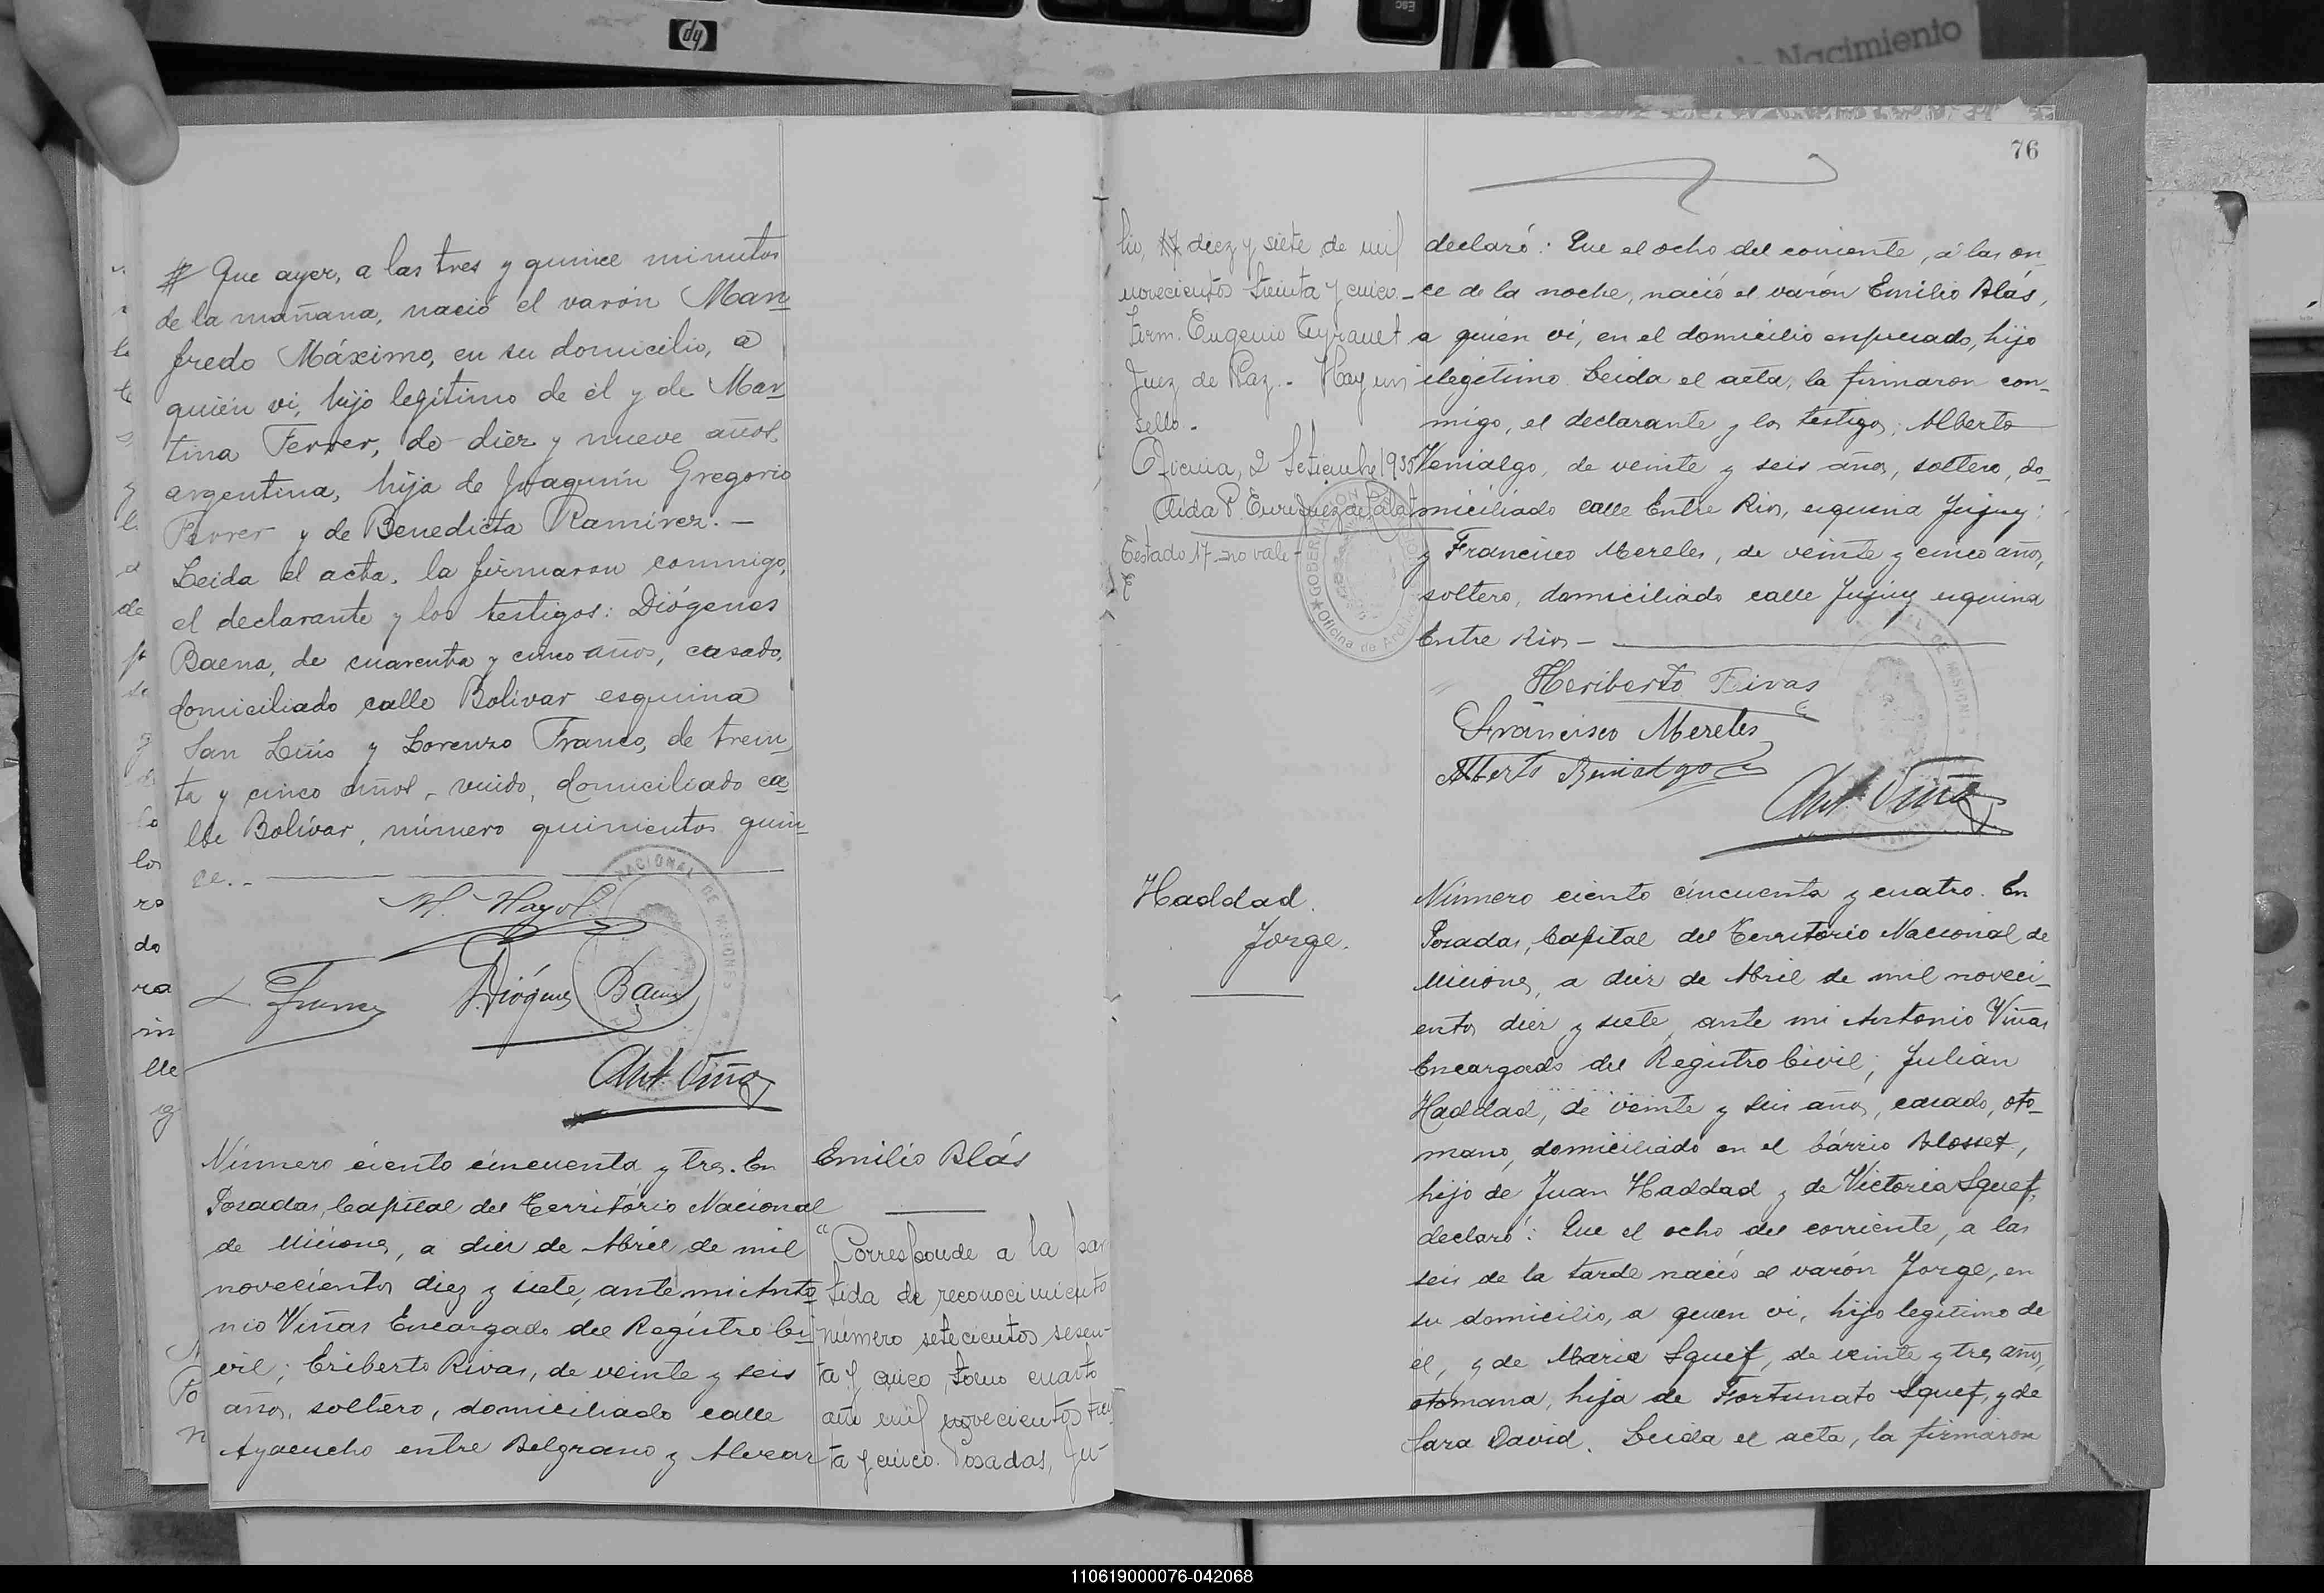 hp
ESC
Nacimiento
76
# Que ayer, a las tres y quince minutos
de la mañana, nació el varón Man
fredo Máximo, en su domicilio, a
quién vi, hijo legítimo de él y de Mar
tina Ferrer, de diez y nueve años,
argentina, hija de Joaquín Gregorio
Ferrer y de Benedicta Ramírez. —
Leida el acta, la firmaron conmigo,
el declarante y los testigos: Diógenes
Baena, de cuarenta y cinco años, casado,
domiciliado calle Bolívar esquina
San Luis y Lorenzo Franco, de trein
ta y cinco años, viudo, domiciliado ca
lle Bolívar, número quinientos quin
ce. -
L Franco
Diógenes Baena
Ant. Viñas
Número ciento cincuenta y tres. En
Posadas, Capital del Território Nacional
de Misiones, a diez de Abril de mil
novecientos diez y siete, ante mi Anto
nio Viñas Encargado del Registro Ci
vil; Eriberto Rivas, de veinte y seis
años, soltero, domiciliado calle
Ayacucho entre Belgrano y Alvear
Emilio Blás
"Corresponde a la par
tida de reconocimiento
número setecientos sesen-
ta y cinco, tomo cuarto
año mil novecientos trein
ta y cinco. Posadas, Ju-
lio, 17 diez y siete de mil
novecientos treinta y cinco.-
Firm. Eugenio
Juez de Paz. - Hay un
sello.-
Oficina, 2 Setiembre 1935
Aida P. Enriquez de
Testado 17-no vale-
declaró: Que el ocho del corriente, á las on-
ce de la noche, nació el varón Emilio Blás,
a quién vi, en el domicilio expresado, hijo
ilegítimo. Leida el acta, la firmaron con-
migo, el declarante y los testigos; Alberto
Benialgo, de veinte y seis años, soltero, do-
miciliado calle Entre Rios, esquina Jujuy;
y Francisco Mereles, de veinte y cinco años,
soltero, domiciliado calle Jujuy esquina
Entre Rios -
Heriberto Rivas
Francisco Mereles
Alberto Benialgo
Ant. Viñas
Haddad.
Jorge.
Número ciento cincuenta y cuatro. En
Posadas, Capital del Território Nacional de
Misiones, a diez de Abril de mil noveci-
entos diez y siete, ante mi Antonio Viñas
Encargado del Registro Civil; Julián
Haddad, de veinte y seis años, casado, oto-
mano, domiciliado en el bárrio Blosset,
hijo de Juan Haddad y de Victoria Squef,
declaró: Que el ocho del corriente, a las
seis de la tarde nació el varón Jorge, en
su domicilio, a quien vi, hijo legítimo de
él, y de Maria Squef, de veinte y tres años,
otomana, hija de Fortunato Squef, y de
Sara David. Leida el acta, la firmaron
110619000076-042068